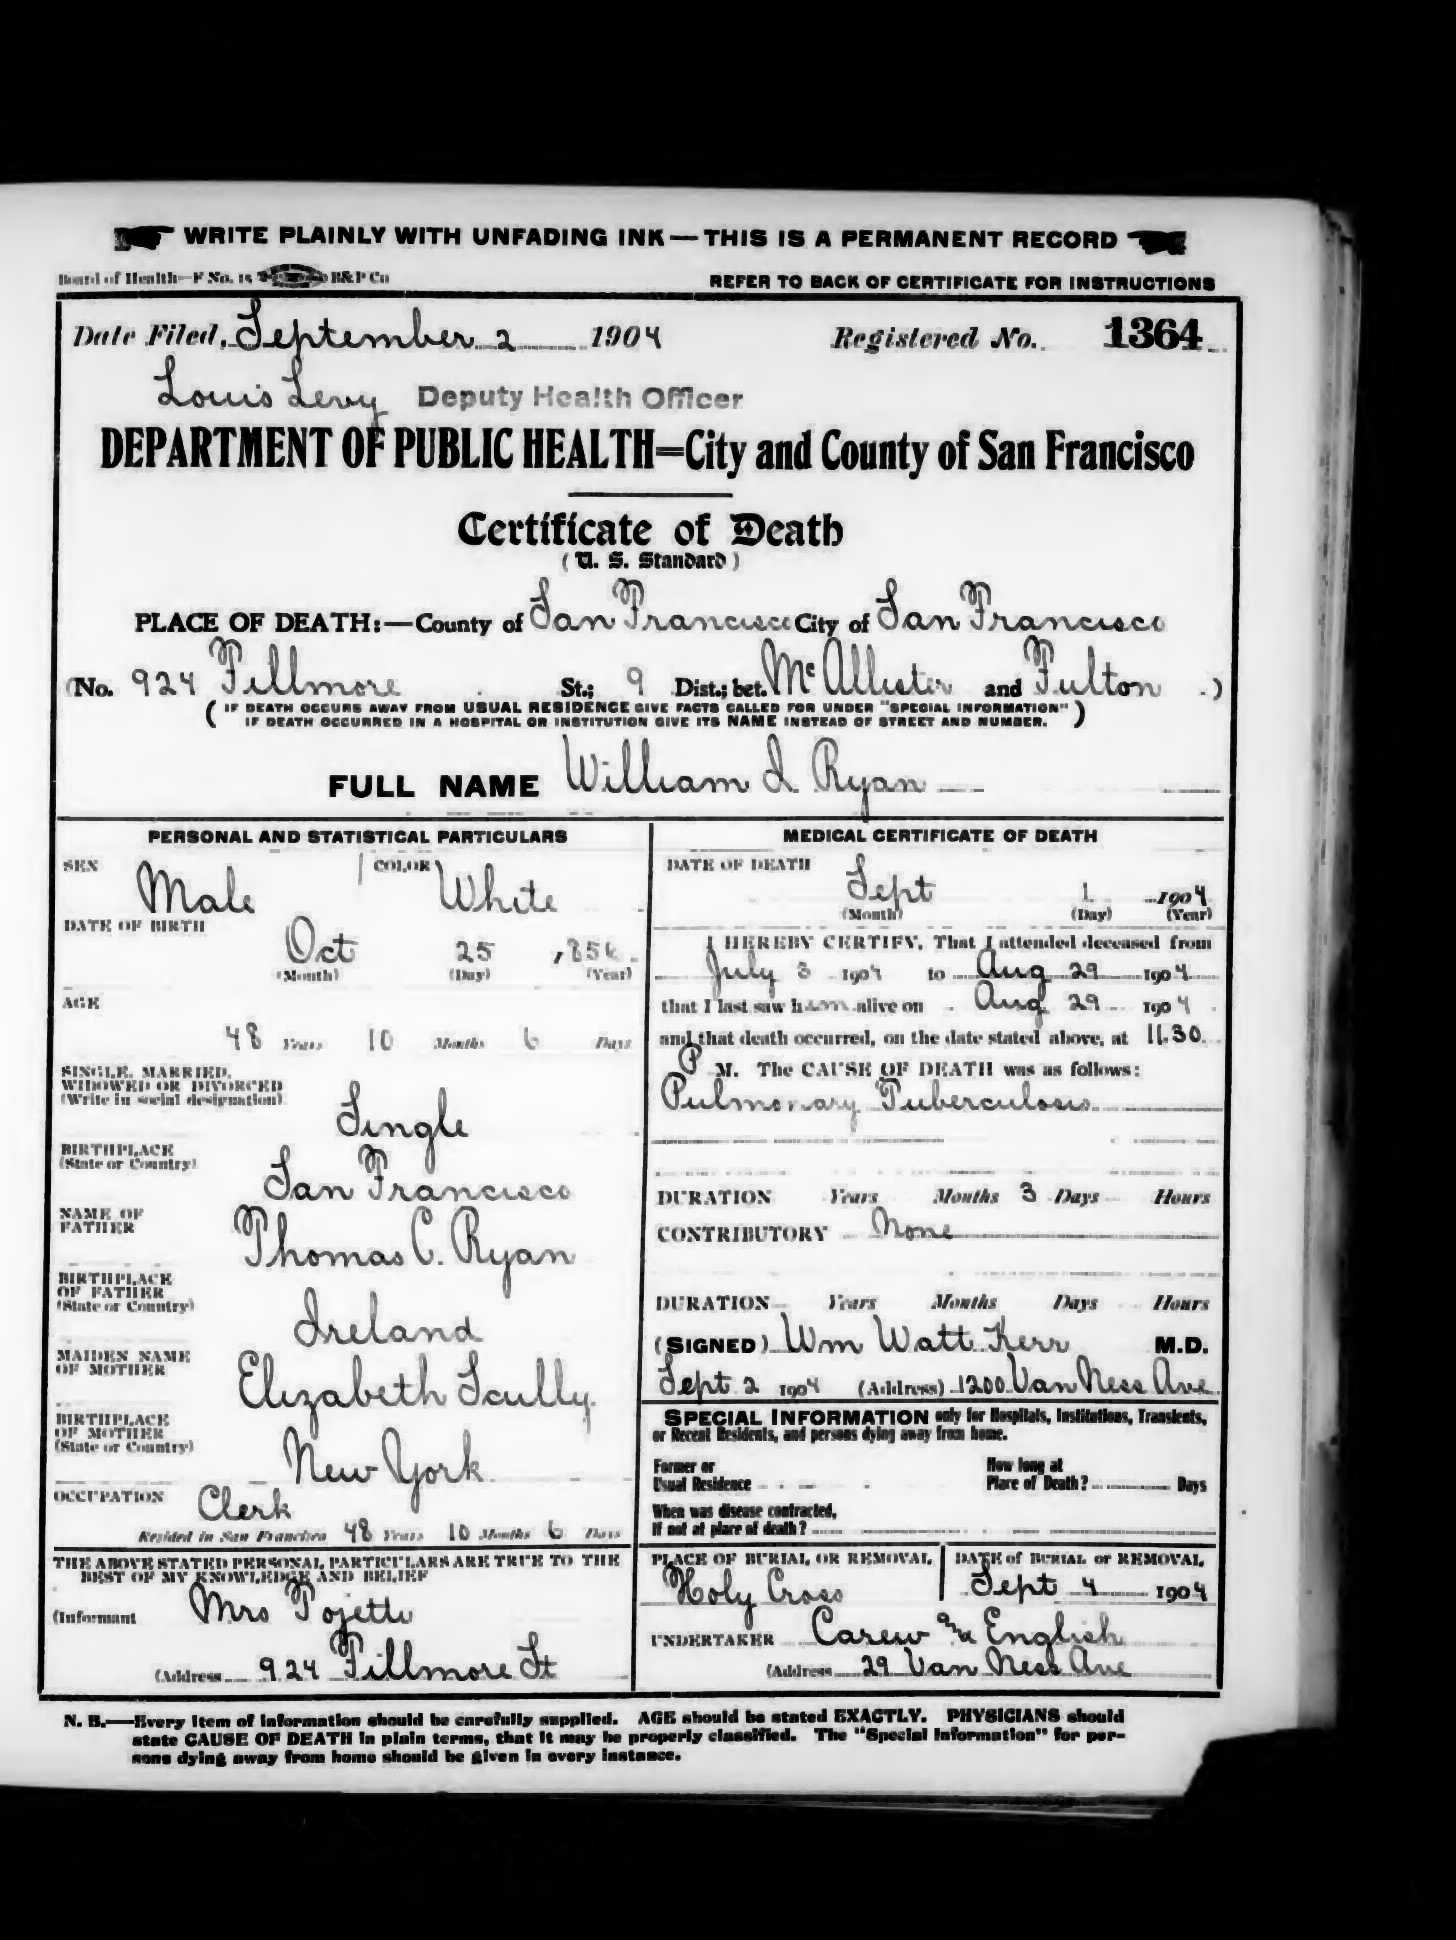 WRITE PLAINLY WITH UNFADING INK—THIS IS A PERMANENT RECORD
Board of Health—F No. 15 B&P Co
REFER TO BACK OF CERTIFICATE FOR INSTRUCTIONS
Date Filed, September 2 1904 Registered No. 1364
Louis Levy Deputy Health Officer
DEPARTMENT OF PUBLIC HEALTH=City and County of San Francisco
Certificate of Death
(U. S. Standard)
PLACE OF DEATH:—County of San Francisco City of San Francisco
(No. 924 Fillmore St.; 9 Dist.; bet. McAllister and Fulton )
( IF DEATH OCCURS AWAY FROM USUAL RESIDENCE GIVE FACTS CALLED FOR UNDER "SPECIAL INFORMATION"
IF DEATH OCCURRED IN A HOSPITAL OR INSTITUTION GIVE ITS NAME INSTEAD OF STREET AND NUMBER. )
FULL NAME William I Ryan
PERSONAL AND STATISTICAL PARTICULARS
SEX Male COLOR White
DATE OF BIRTH
Oct 25
(Month) (Day) (Year)
AGE
48 Years 10 Months 6 Days
SINGLE, MARRIED,
WIDOWED OR DIVORCED
(Write in social designation)
Single
BIRTHPLACE
(State or Country)
San Francisco
NAME OF
FATHER
Thomas C. Ryan
BIRTHPLACE
OF FATHER
(State or Country)
Ireland
MAIDEN NAME
OF MOTHER
Elizabeth Scully
BIRTHPLACE
OF MOTHER
(State or Country)
New York
OCCUPATION Clerk
Resided in San Francisco 48 Years 10 Months 6 Days
THE ABOVE STATED PERSONAL PARTICULARS ARE TRUE TO THE
BEST OF MY KNOWLEDGE AND BELIEF
(Informant Mrs
(Address 924 Fillmore St
MEDICAL CERTIFICATE OF DEATH
DATE OF DEATH
Sept 1 1904
(Month) (Day) (Year)
I HEREBY CERTIFY, That I attended deceased from
July 3 1904 to Aug 29 1904
that I last saw him alive on Aug 29 1904
and that death occurred, on the date stated above, at 11.30
P M. The CAUSE OF DEATH was as follows:
Pulmonary Tuberculosis
DURATION Years Months 3 Days Hours
CONTRIBUTORY None
DURATION Years Months Days Hours
(SIGNED) Wm Watt Kerr M.D.
Sept 2 1904 (Address) 1200 Van Ness Ave
SPECIAL INFORMATION only for Hospitals, Institutions, Transients,
or Recent Residents, and persons dying away from home.
Former or
Usual Residence
How long at
Place of Death? Days
When was disease contracted,
If not at place of death?
PLACE OF BURIAL OR REMOVAL
Holy Cross
DATE of BURIAL or REMOVAL
Sept 4 1904
UNDERTAKER Carew & English
(Address 29 Van Ness Ave
N. B.—Every item of information should be carefully supplied. AGE should be stated EXACTLY. PHYSICIANS should
state CAUSE OF DEATH in plain terms, that it may be properly classified. The "Special Information" for per-
sons dying away from home should be given in every instance.